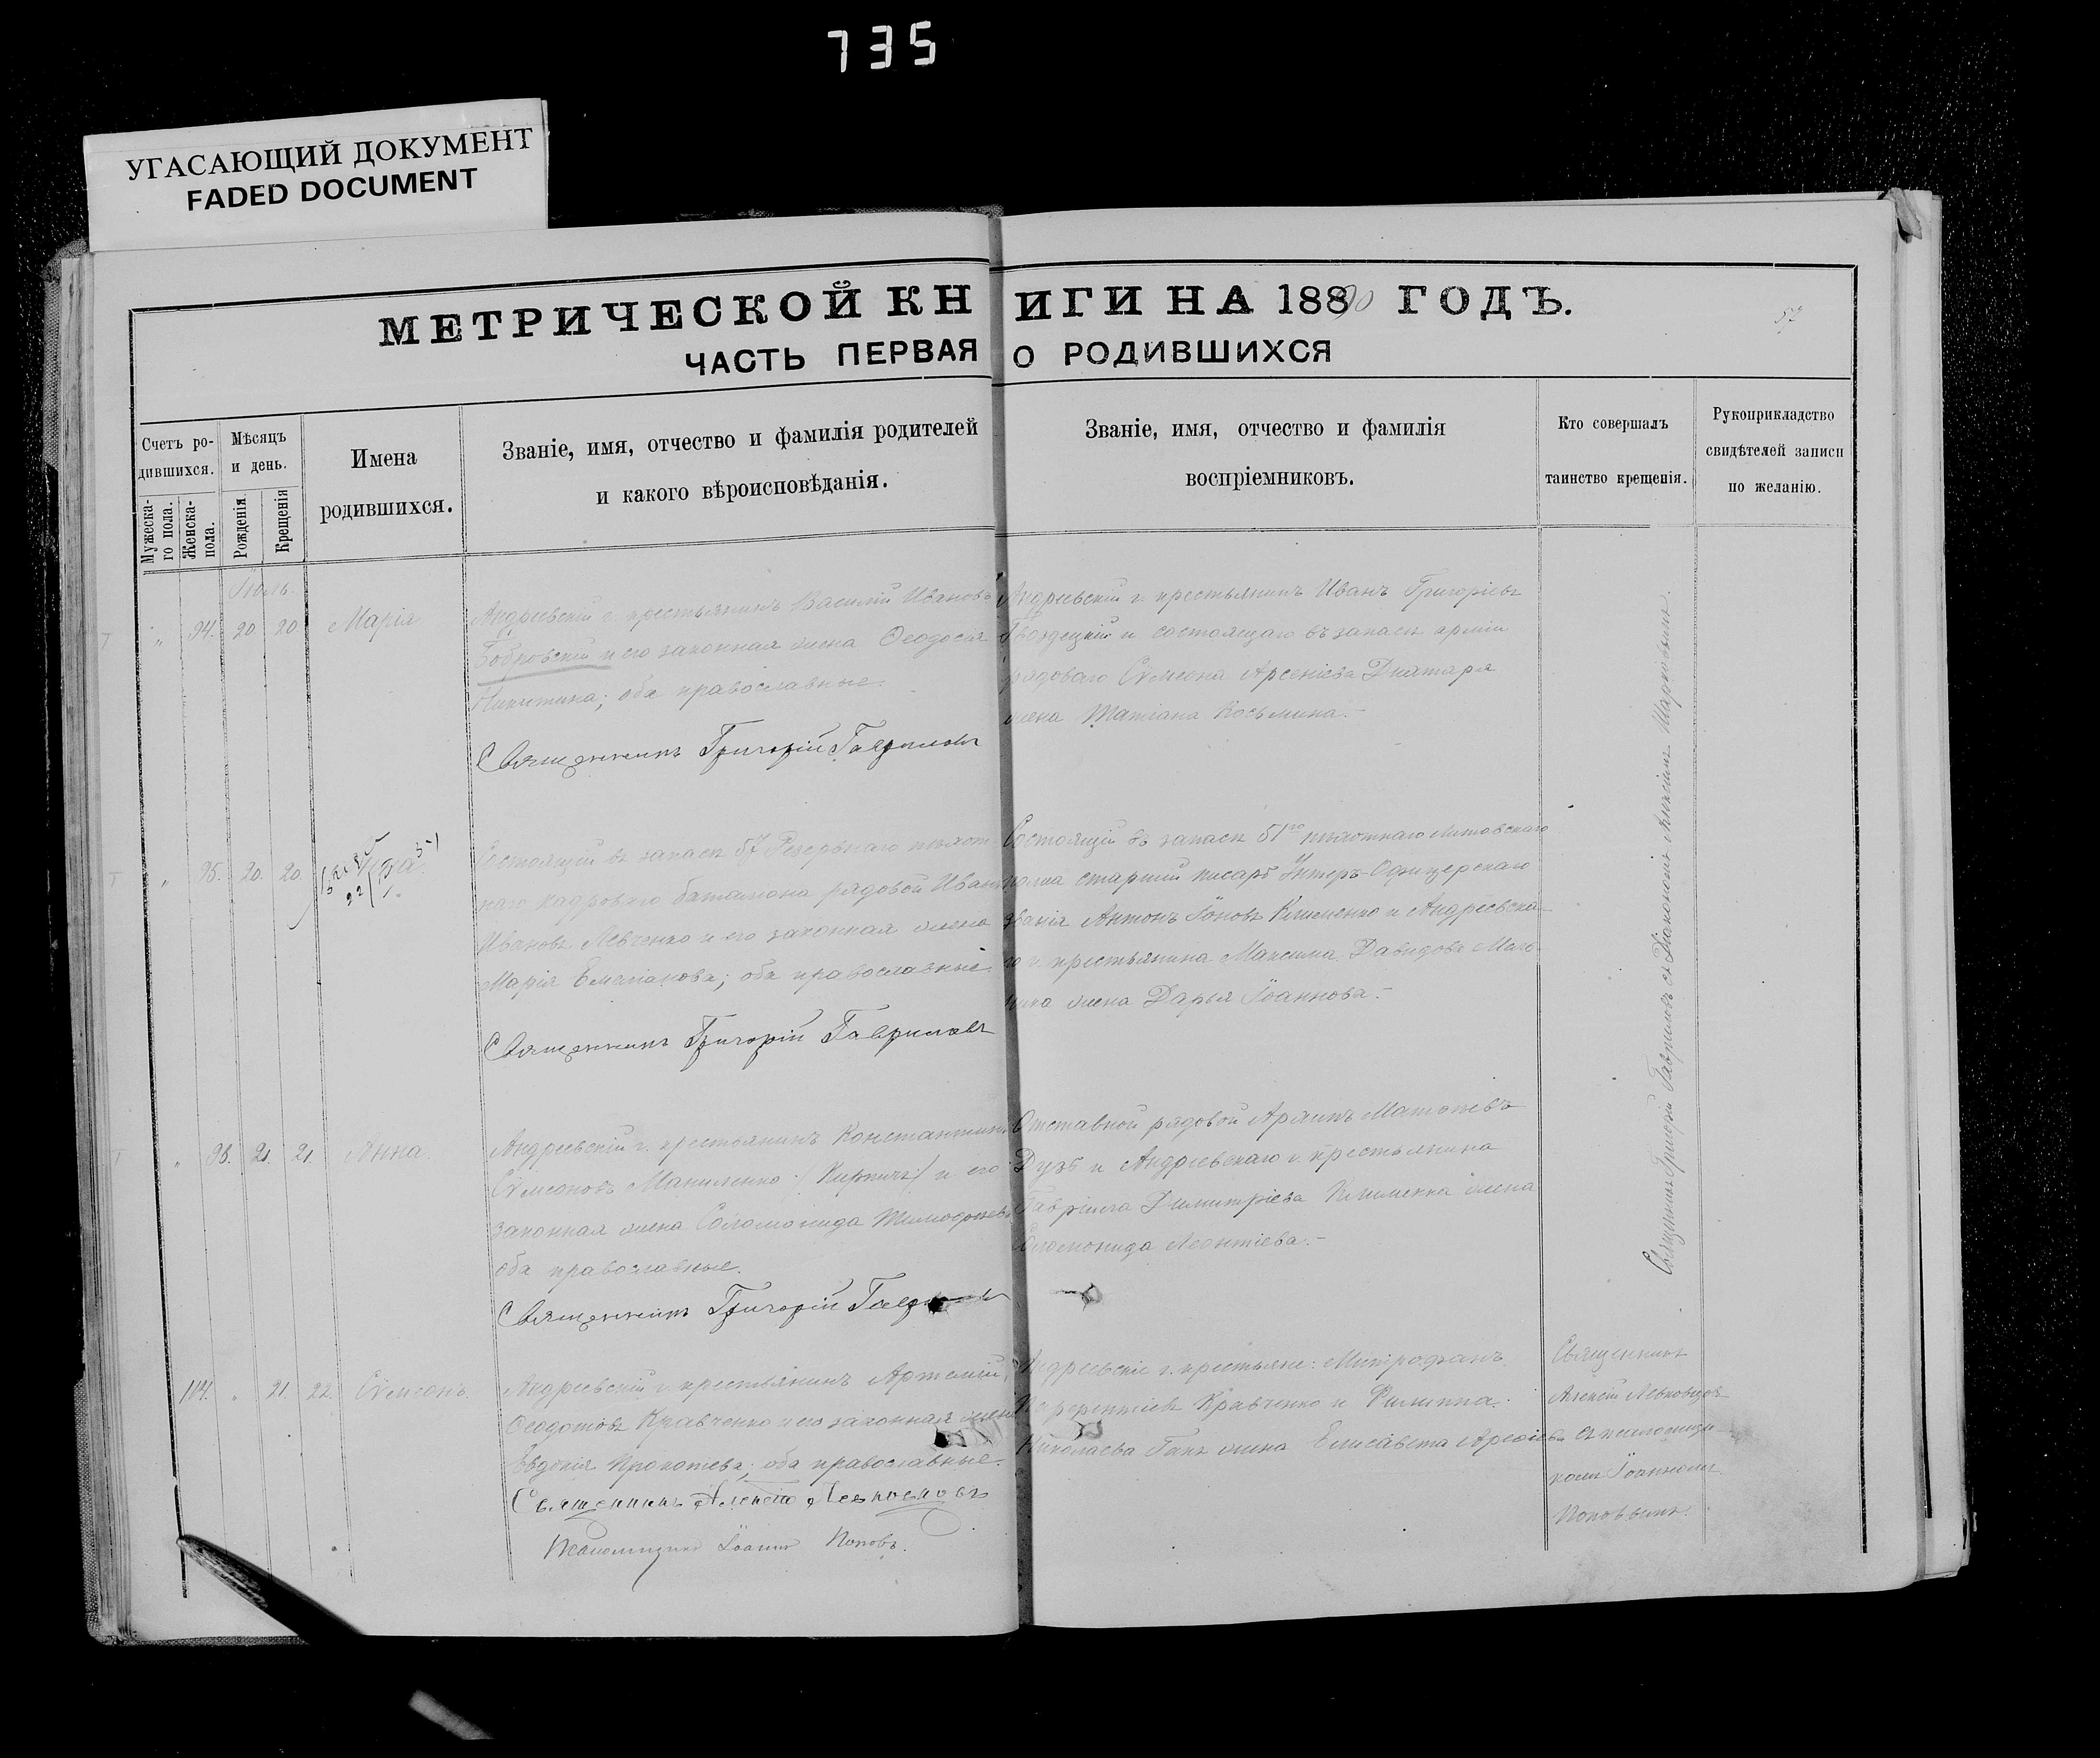 735
УГАСАЮЩИЙ ДОКУМЕНТ
FADED DOCUMENT
МЕТРИЧЕСКОЙ КНИГИ НА 18890 ГОДЪ.
57
ЧАСТЬ ПЕРВАЯ О РОДИВШИХСЯ
Счетъ ро-
дившихся.
Мужеска-
го пола.
Женска-
пола.
Мѣсяцъ
и день.
Рожденія
Крещенія
Имена
родившихся.
Званіе, имя, отчество и фамилія родителей
и какого вѣроисповѣданія.
Званіе, имя, отчество и фамилія
воспріемниковъ.
Кто совершалъ
таинство крещенія.
Рукоприкладство
свидѣтелей записи
по желанію.
Іюль.
" 94. 20 20 Марія
Андреевскій г. крестьянинъ Василій Ивановъ
Бобровскій и его законная жена Ѳеодосія
Никитина; оба православные.
Священникъ Григорій Гавриловъ
Андреевскій г. крестьянинъ Иванъ Григорьевъ
Гвоздецкій и состоящаго въ запасѣ арміи
рядоваго Сѵмеона Арсеніева Дихтаря
жена Татіана Косьмина.-
" 95. 20. 20.
Состоящій въ запасѣ 57 Резервнаго пѣхот-
наго кадроваго баталіона рядовой Иванъ
Ивановъ Левченко и его законная жена
Марія Емеліанова; оба православные.
Священникъ Григорій Гавриловъ
Состоящій въ запасѣ 51го пѣхотнаго Литовскаго
полка старшій писарь Унтеръ-Офицерскаго
званія Антонъ Іоновъ Клименко и Андреевска-
го г. крестьянина Максима Давидова
жена Дарья Іоаннова.-
" 96. 21. 21. Анна.
Андреевскій г. крестьянинъ Константинъ
Сѵмеоновъ Маниленко (Кирпичъ) и его
законная жена Соломонида Тимоѳеева
оба православные.
Священникъ Григорій Гавриловъ
Отставной рядовой Матѳеевъ
и Андреевскаго г. крестьянина
Гавріила Димитріева Клименка жена
Соломонида Леонтіева.-
Священникъ Григорій Гавриловъ съ Діакономъ Алексіемъ
114. " 21. 22. Сѵмеонъ.
Андреевскій г. крестьянинъ Артемій
Ѳеодотовъ Кравченко и его законная жена
Евдокія Прокопіева; оба православные.
Священникъ Алексій
Псаломщикъ Іоаннъ Поповъ.
Андреевскіе г. крестьяне: Митрофанъ
Терентіевъ Кравченко и Филиппа
Николаева жена Елисавета
Священникъ
Алексій
съ псаломщи-
комъ Іоанномъ
Поповымъ.